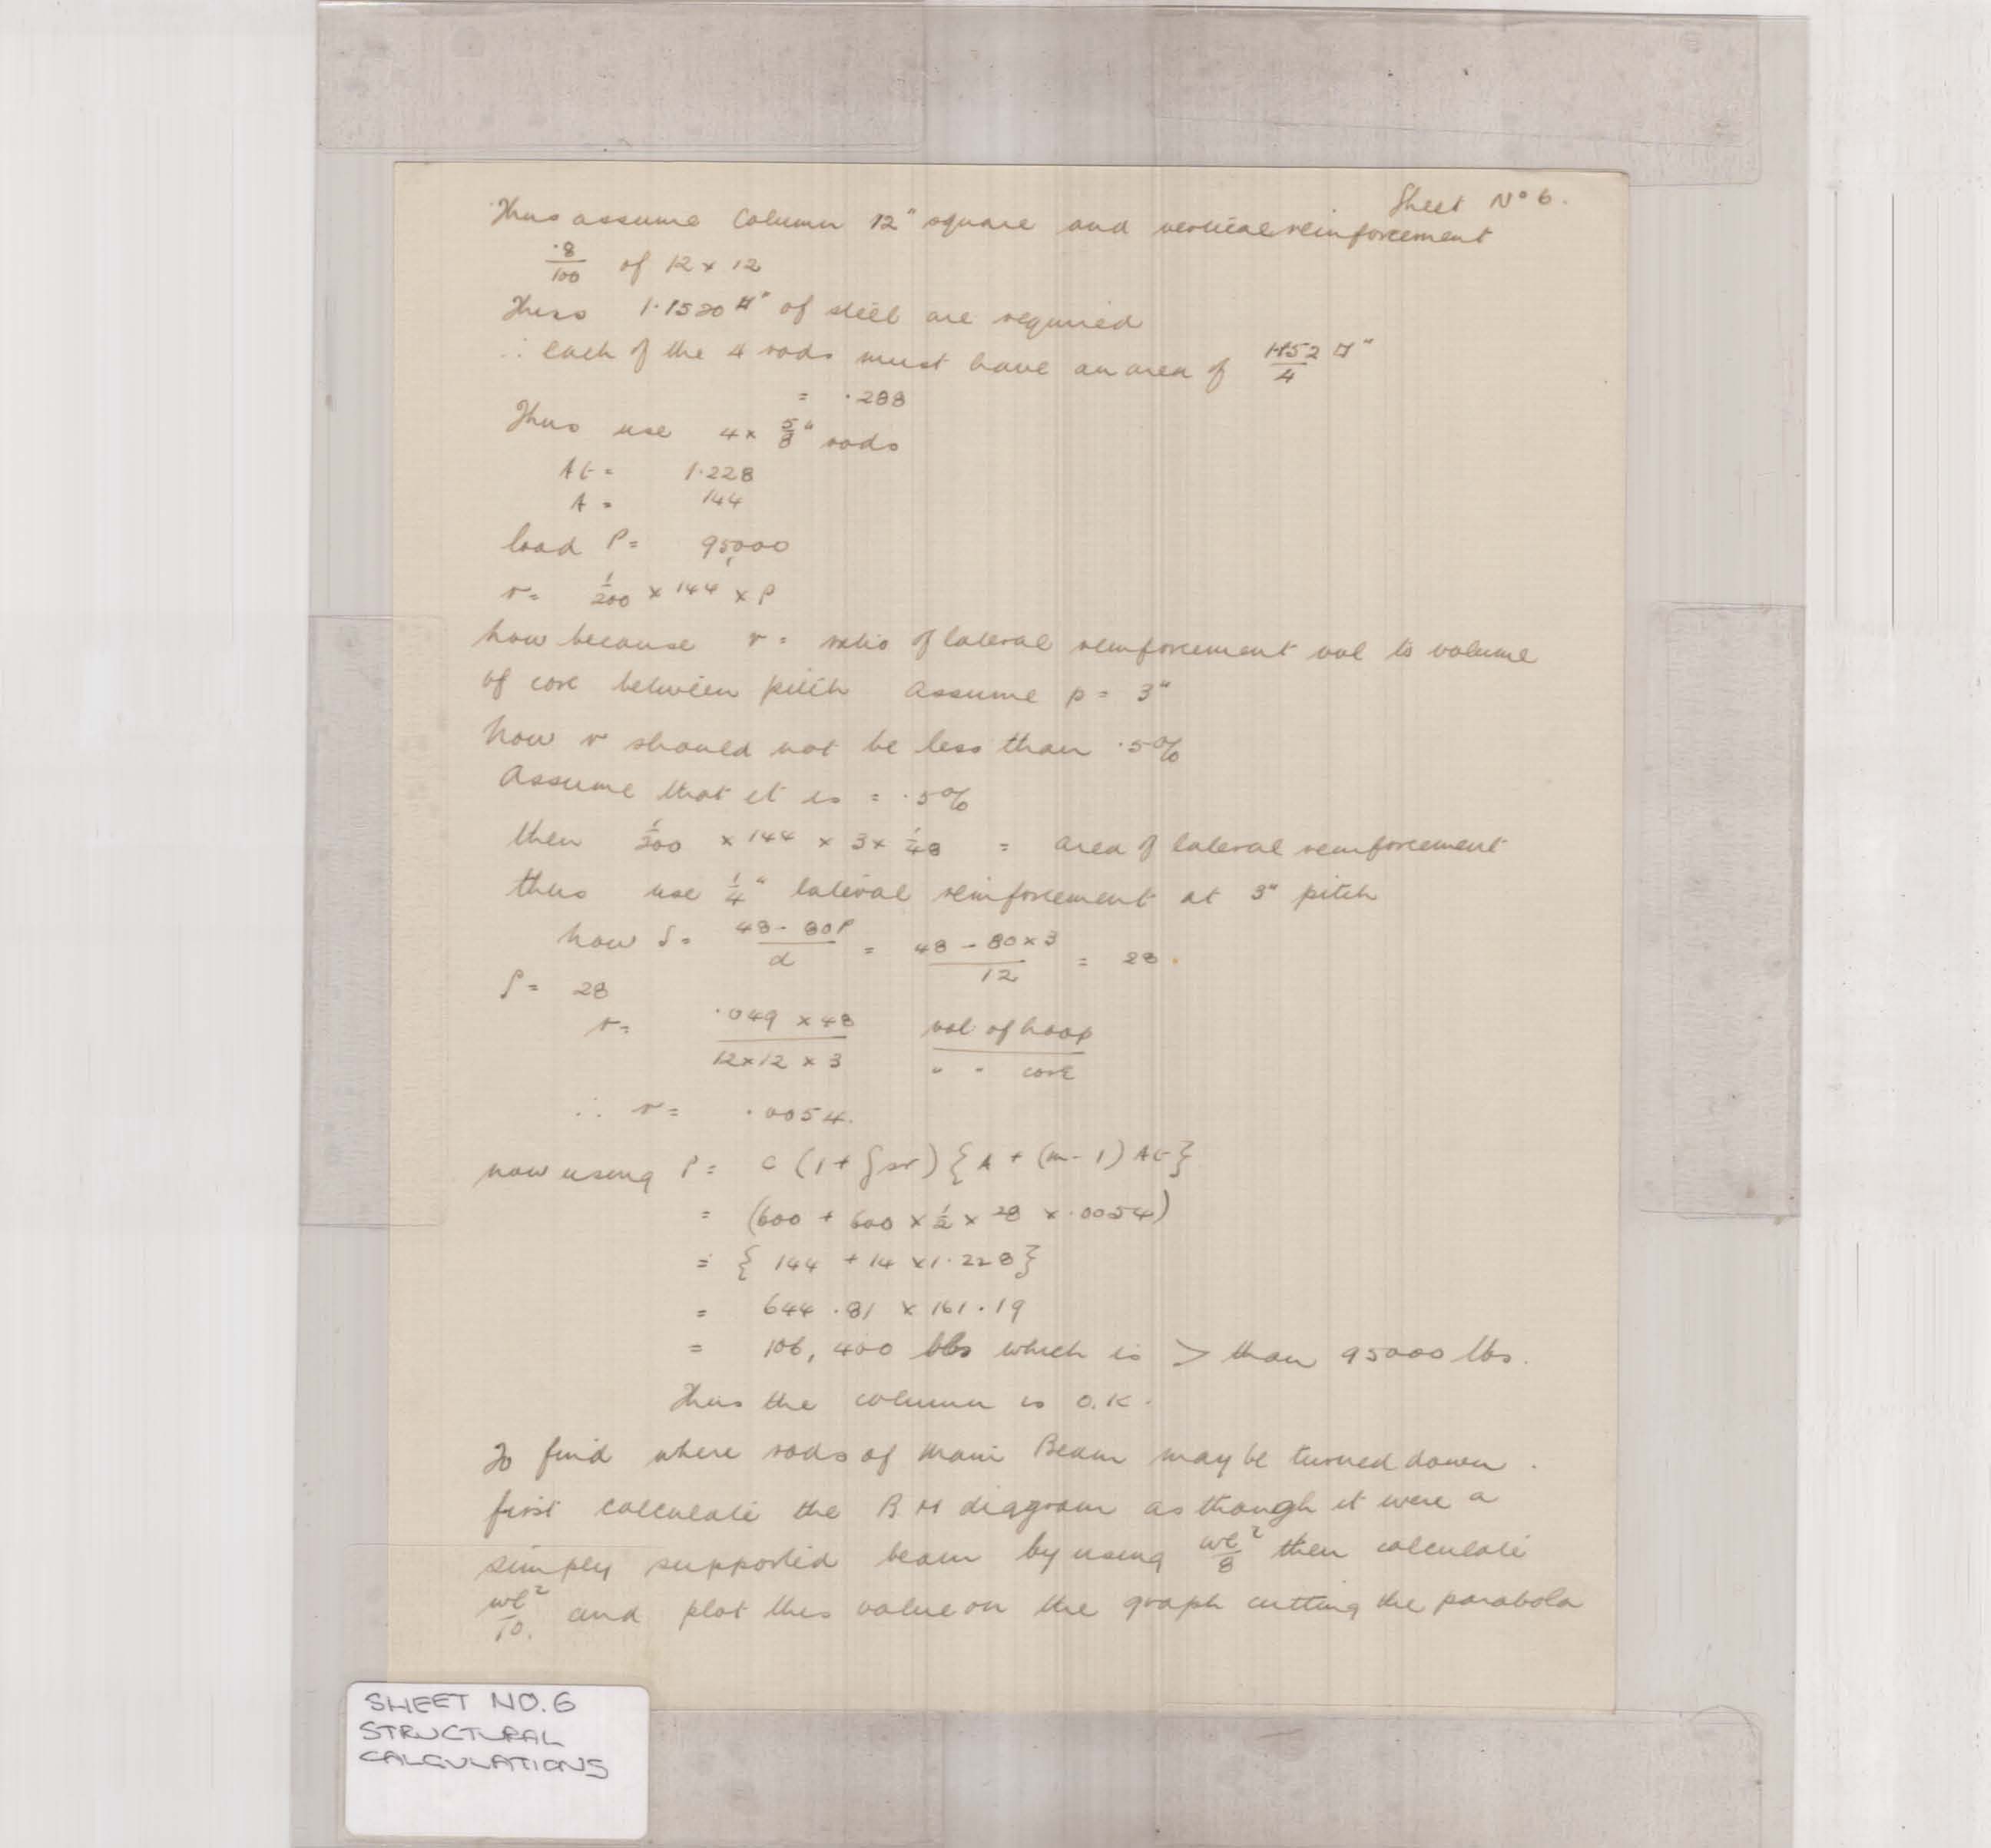 Sheet Nº 6.
Thus assume Column 12" square and vertical reinforcement
.8/100 of 12 x 12
Thus 1.1520 □" of steel are required
∴ each of the 4 rods must have an area of 1.152/4 □"
= .288
Thus use 4 x 5/8" rods
At = 1.228
A = 144
load P = 95,000
r = 1/200 x 144 x p
now because r = ratio of lateral reinforcement vol to volume
of core between pitch Assume p = 3"
now r should not be less than .5%
Assume that it is = .5%
then 1/200 x 144 x 3 x 1/48 = area of lateral reinforcement
thus use 1/4" lateral reinforcement at 3" pitch
now S = 48 - 80p/d = 48 - 80 x 3/12 = 28.
S = 28
r = .049 x 48/12 x 12 x 3 vol of hoop/" " core
∴ r = .0054.
now using P = c (1 + ʃsr) {A + (m - 1) At}
= (600 + 600 x 1/2 x 28 x .0054)
= { 144 + 14 x 1.228}
= 644.81 x 161.19
= 106,400 lbs which is > than 95000 lbs.
Thus the column is O.K.
To find where rods of main Beam may be turned down.
first calculate the B M diagram as though it were a
simply supported beam by using wl²/8 then calculate
wl²/10. and plot this value on the graph cutting the parabola
SHEET NO. 6
STRUCTURAL
CALCULATIONS